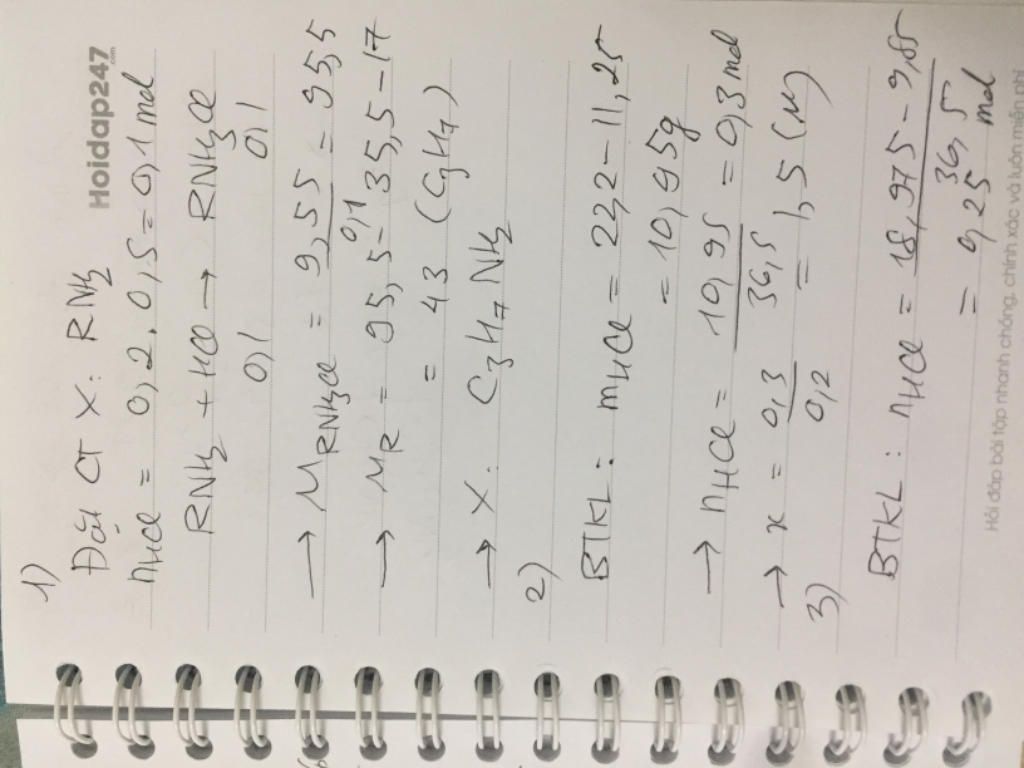 Hoidap247
.com
1)
Đặt CT X: RNH₂
nHCl = 0,2.0,5 = 0,1 mol
RNH₂ + HCl → RNH₃Cl
0,1 0,1
→ M RNH₃Cl = 9,55/0,1 = 95,5
→ MR = 95,5 - 35,5 - 17
= 43 (C₃H₇)
→ X: C₃H₇NH₂
2)
BTKL: mHCl = 22,2 - 11,25
= 10,95g
→ nHCl = 10,95/36,5 = 0,3 mol
→ x = 0,3/0,2 = 1,5 (M)
3)
BTKL: nHCl = 18,975 - 9,85/36,5
= 0,25 mol
Hỏi đáp bài tập nhanh chóng, chính xác và luôn miễn phí